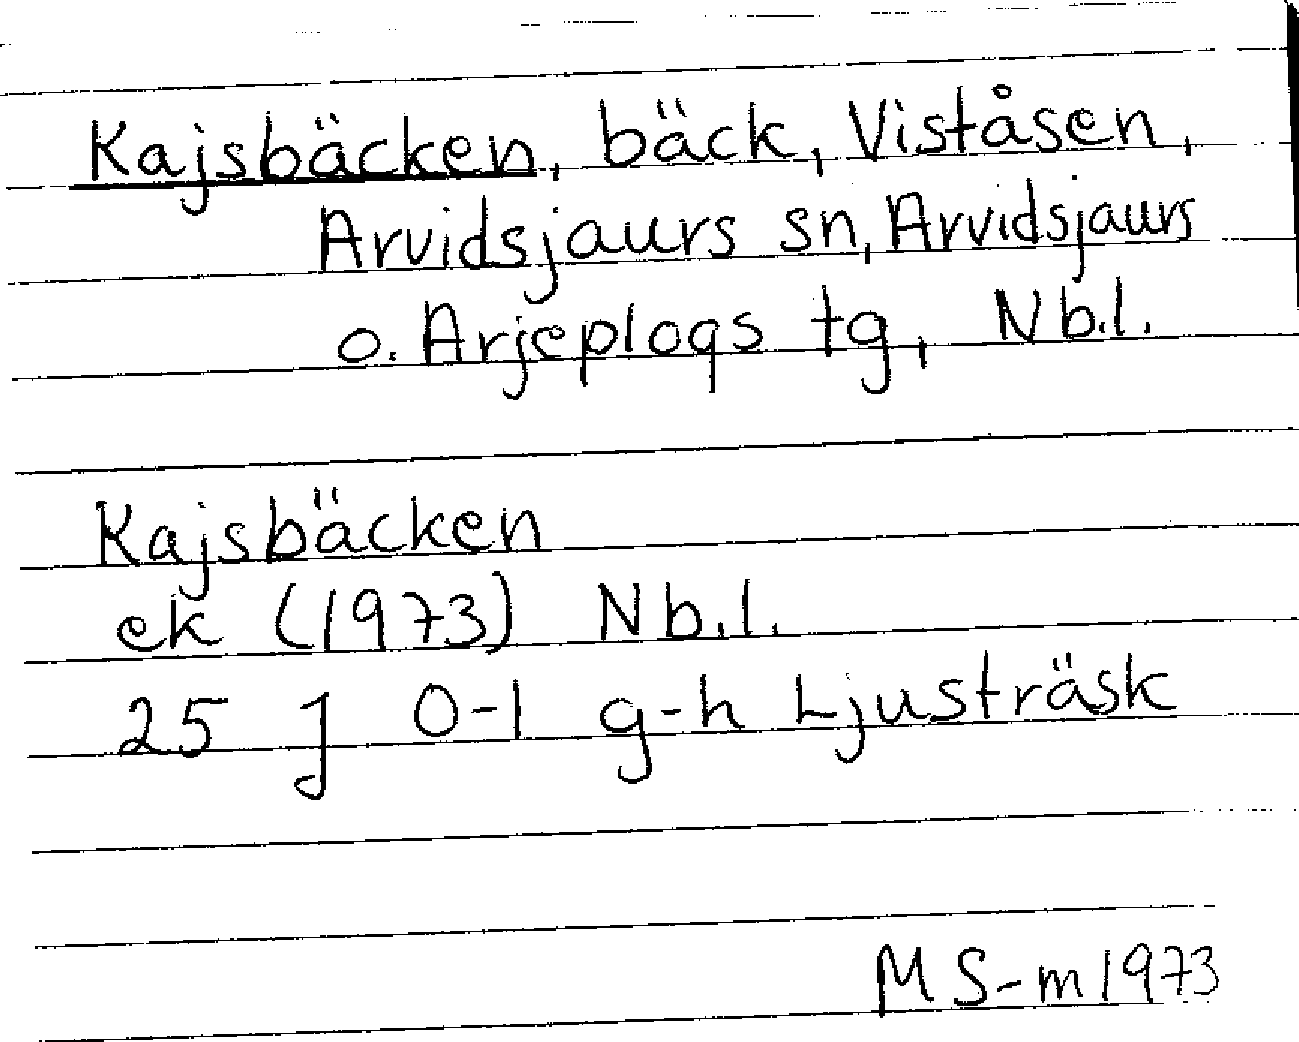 Kajsbäcken, bäck, Viståsen,
Arvidsjaurs sn, Arvidsjaurs
o. Arjeplogs tg, Nb.l.
Kajsbäcken
ek (1973) Nb.l.
25 J 0-1 g-h Ljusträsk
MS-m 1973